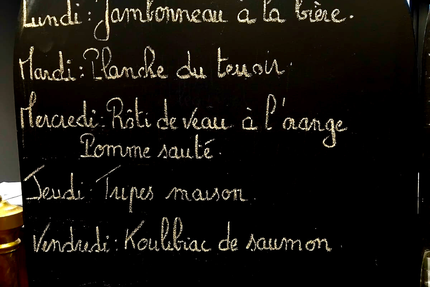 Lundi: Jambonneau à la bière.
Mardi: Planche du terroir.
Mercredi: Rôti de veau à l'orange
Pomme sauté.
Jeudi: Tripes maison.
Vendredi: Koulibiac de saumon.